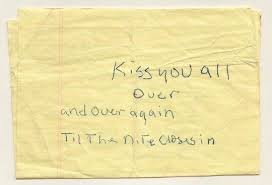 Kiss you all
over
and over again
Til The niTe closes in